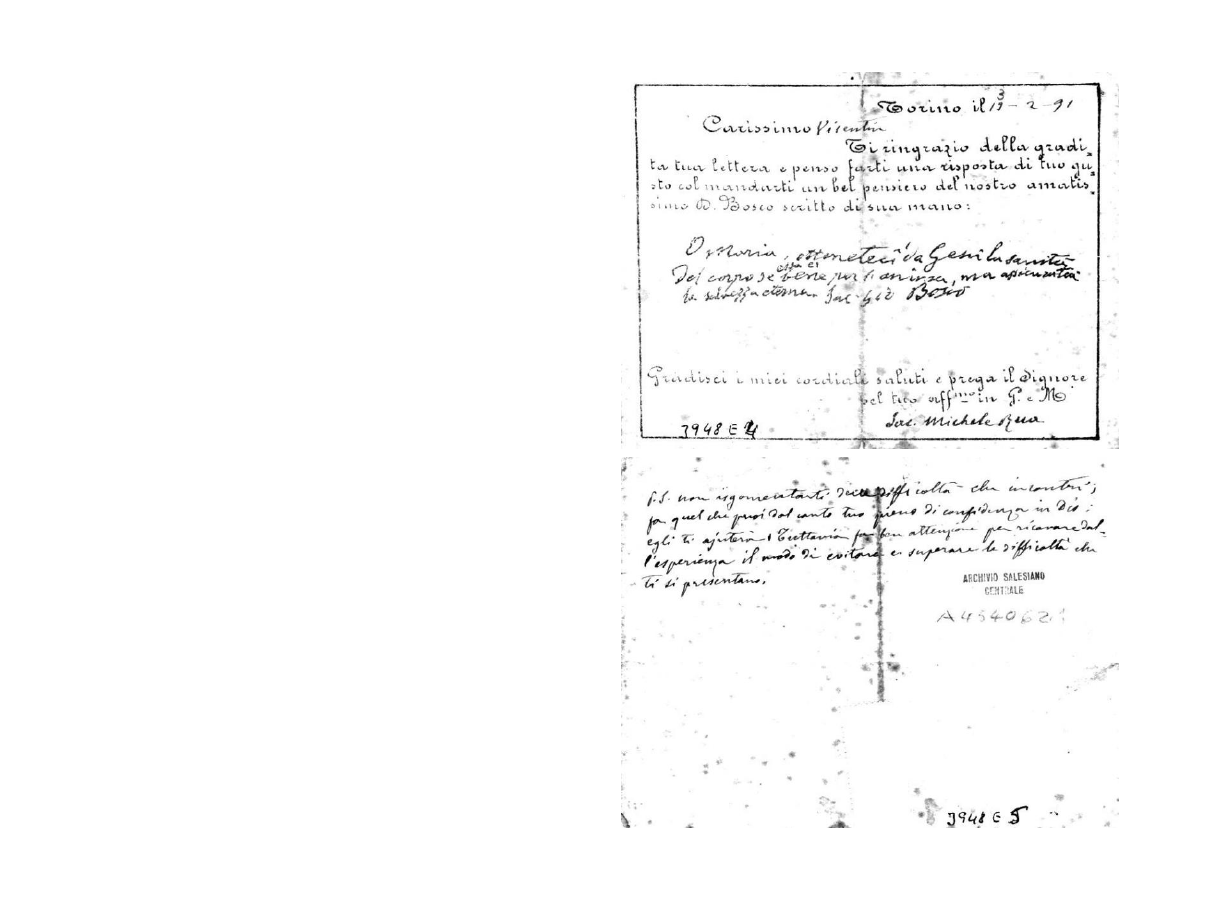 Torino il 13-2-91
Carissimo Visentin
Ti ringrazio della gradi-
ta tua lettera e penso farti una risposta di tuo gu-
sto col mandarti un bel pensiero del nostro amatis-
simo D. Bosco scritto di sua mano:
O Maria, otteneteci da Gesù la sanità
del corpo se essa è bene per l'anima, ma assicurateci
la salvezza eterna. Sac. Gio Bosco
Gradisci i miei cordiali saluti e prega il Signore
pel tuo aff.mo in G. e M.
Sac. Michele Rua
3948 E 4
P.S. non isgomentarti delle difficoltà che incontri;
fa quel che puoi dal canto tuo pieno di confidenza in Dio:
egli ti ajuterà! Tuttavia fa ben attenzione per ricavare dal-
l'esperienza il modo di evitare e superare le difficoltà che
ti si presentano.
ARCHIVIO SALESIANO
CENTRALE
A454062
3948 E 5